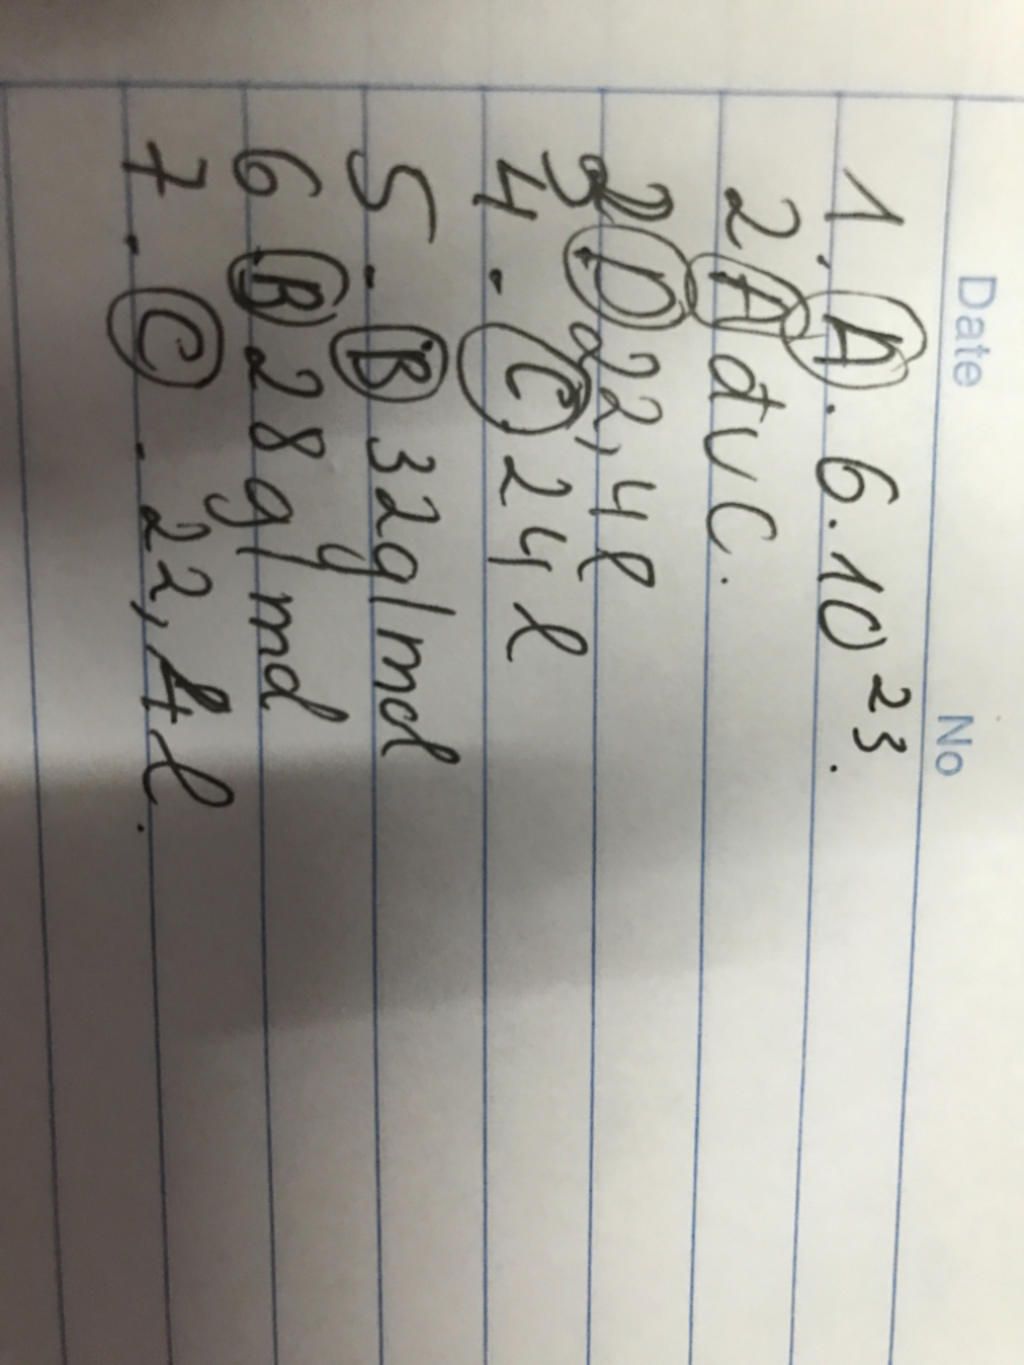 Date No
1. A. 6.10²³.
2. A đvC.
3 D. 22,4l
4. C. 24 l
5. B 32g/mol
6. B 28g/mol
7. C. 22,4l.